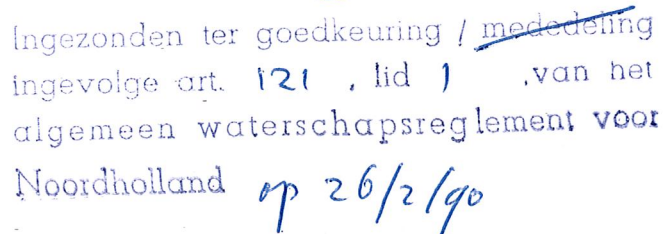 Ingezonden ter goedkeuring / mededeling
ingevolge art. 121 , lid 1 , van het
algemeen waterschapsreglement voor
Noordholland op 26/2/90